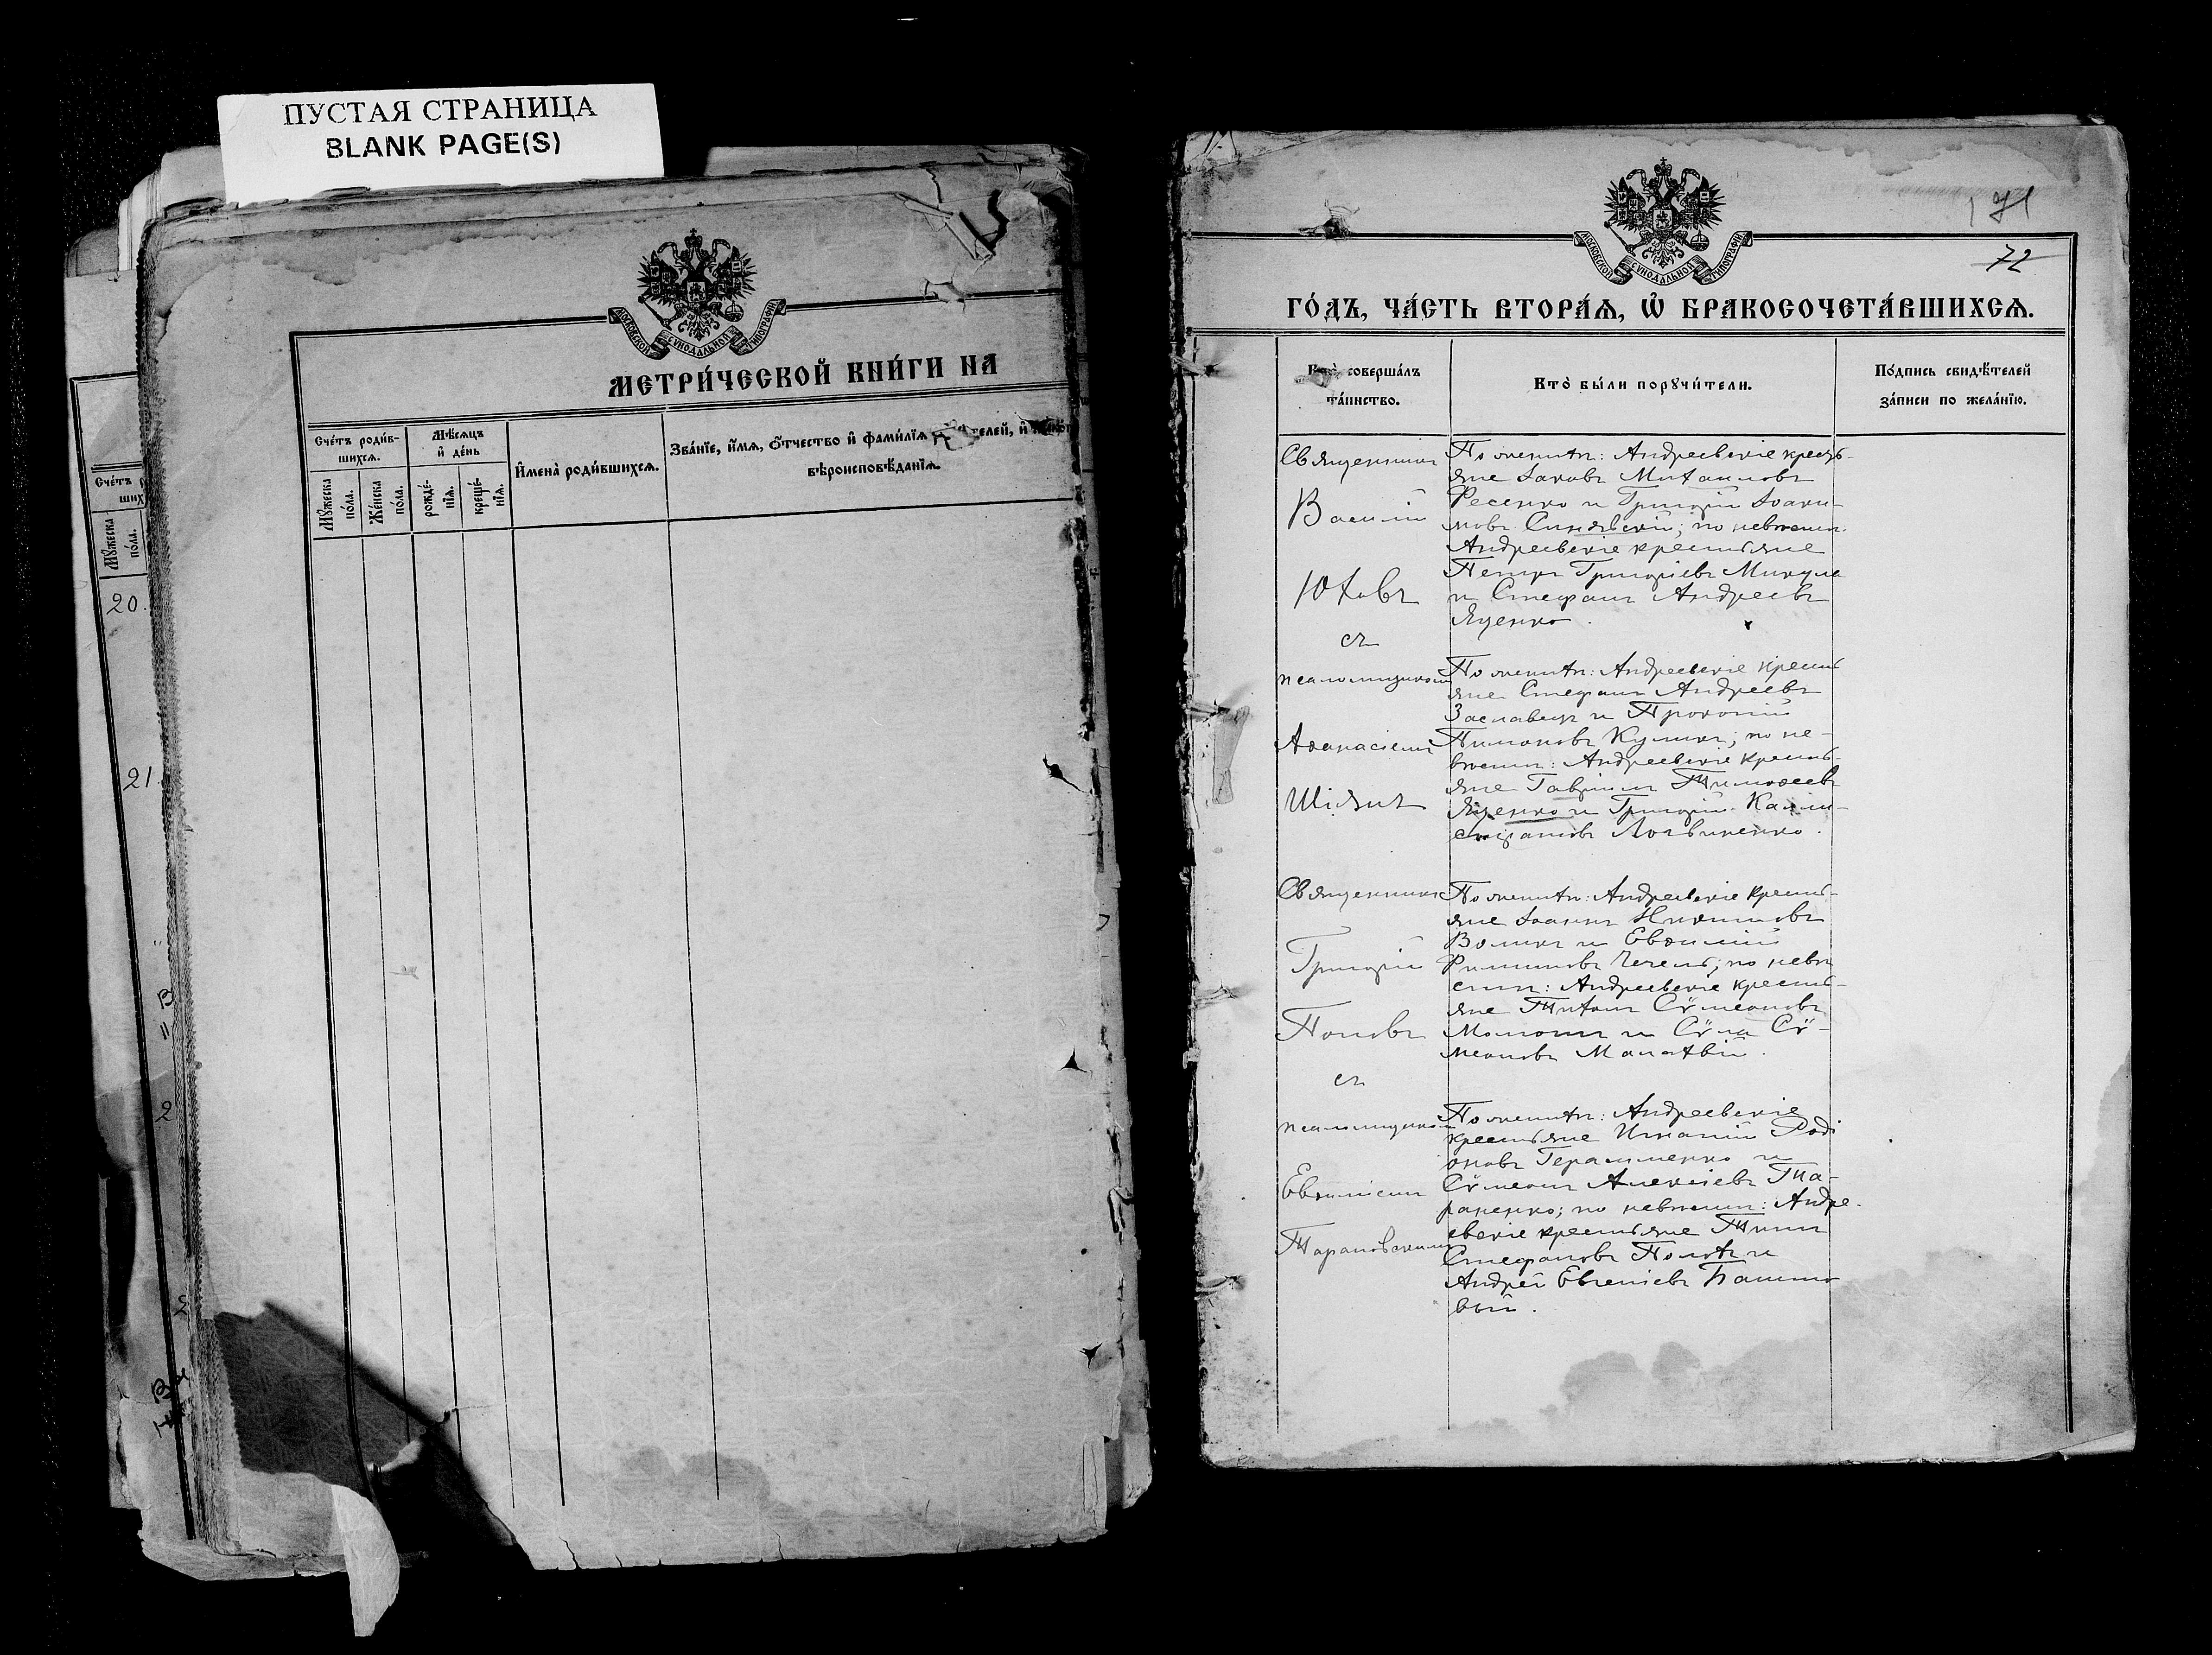 ПУСТАЯ СТРАНИЦА
BLANK PAGE(S)
МОСКОВСКОЙ СѴНОДАЛЬНОЙ ТИПОГРАФІИ
МЕТРИ́ЧЕСКОЙ КНИ́ГИ НА
Сче́тъ роди́в-
шихсѧ.
Мѣ́сѧцъ
и҆ де́нь
И҆мена̀ роди́вшихсѧ.
Зва́нїе, и҆́мѧ, ѻ҆́тчество и҆ фами́лїѧ
вѣроисповѣ́данїѧ.
Мꙋ́жеска
по́ла.
Же́нска
по́ла.
рожде́-
нїѧ.
креще́-
нїѧ.
Сче́тъ
ших
Мꙋ́жеска
по́ла.
20.
21.
В
2
МОСКОВСКОЙ СѴНОДАЛЬНОЙ ТИПОГРАФІИ
71
72
ГО́ДЪ, ЧА́СТЬ ВТОРА́Ѧ, Ѡ҆ БРАКОСОЧЕТА́ВШИХСѦ.
Кто̀ соверша́лъ
та́инство.
Кто̀ бы́ли порꙋчи́тели.
По́дпись свидѣ́телей
за́писи по жела́нїю.
Священникъ
Василій
Юховъ
съ
псаломщикомъ
Аѳанасіемъ
Шіянъ
По женихѣ: Андреевскіе кресть-
яне Іаковъ Михаиловъ
Фесенко и Григорій Іоаки-
мовъ Синявскій; по невѣстѣ:
Андреевскіе крестьяне
Петръ Григоріевъ Микула
и Стефанъ Андреевъ
Яценко.
По женихѣ: Андреевскіе кресть
яне Стефанъ Андреевъ
Заславецъ и Прокопій
Пимоновъ Куликъ; по не-
вѣстѣ: Андреевскіе кресть-
яне Гавріилъ Тимоѳеевъ
Яценко и Григорій Калли-
стратовъ Логвиненко.
Священникъ
Григорій
Поповъ
съ
псаломщикомъ
Евѳиміемъ
Тарановскимъ
По женихѣ: Андреевскіе кресть-
яне Іоаннъ Никитовъ
Воликъ и Евѳимій
Филиповъ Чечель; по невѣ
стѣ: Андреевскіе кресть-
яне Тихонъ Сѵмеоновъ
и Сѵла Сѵ-
меоновъ Малахвій.
По женихѣ: Андреевскіе
крестьяне Игнатій Роді
оновъ Герасименко и
Сѵмеонъ Алексіевъ Та-
раненко; по невѣстѣ: Андре-
евскіе крестьяне Титъ
Стефановъ и
Андрей Евгеніевъ Башто
вый.